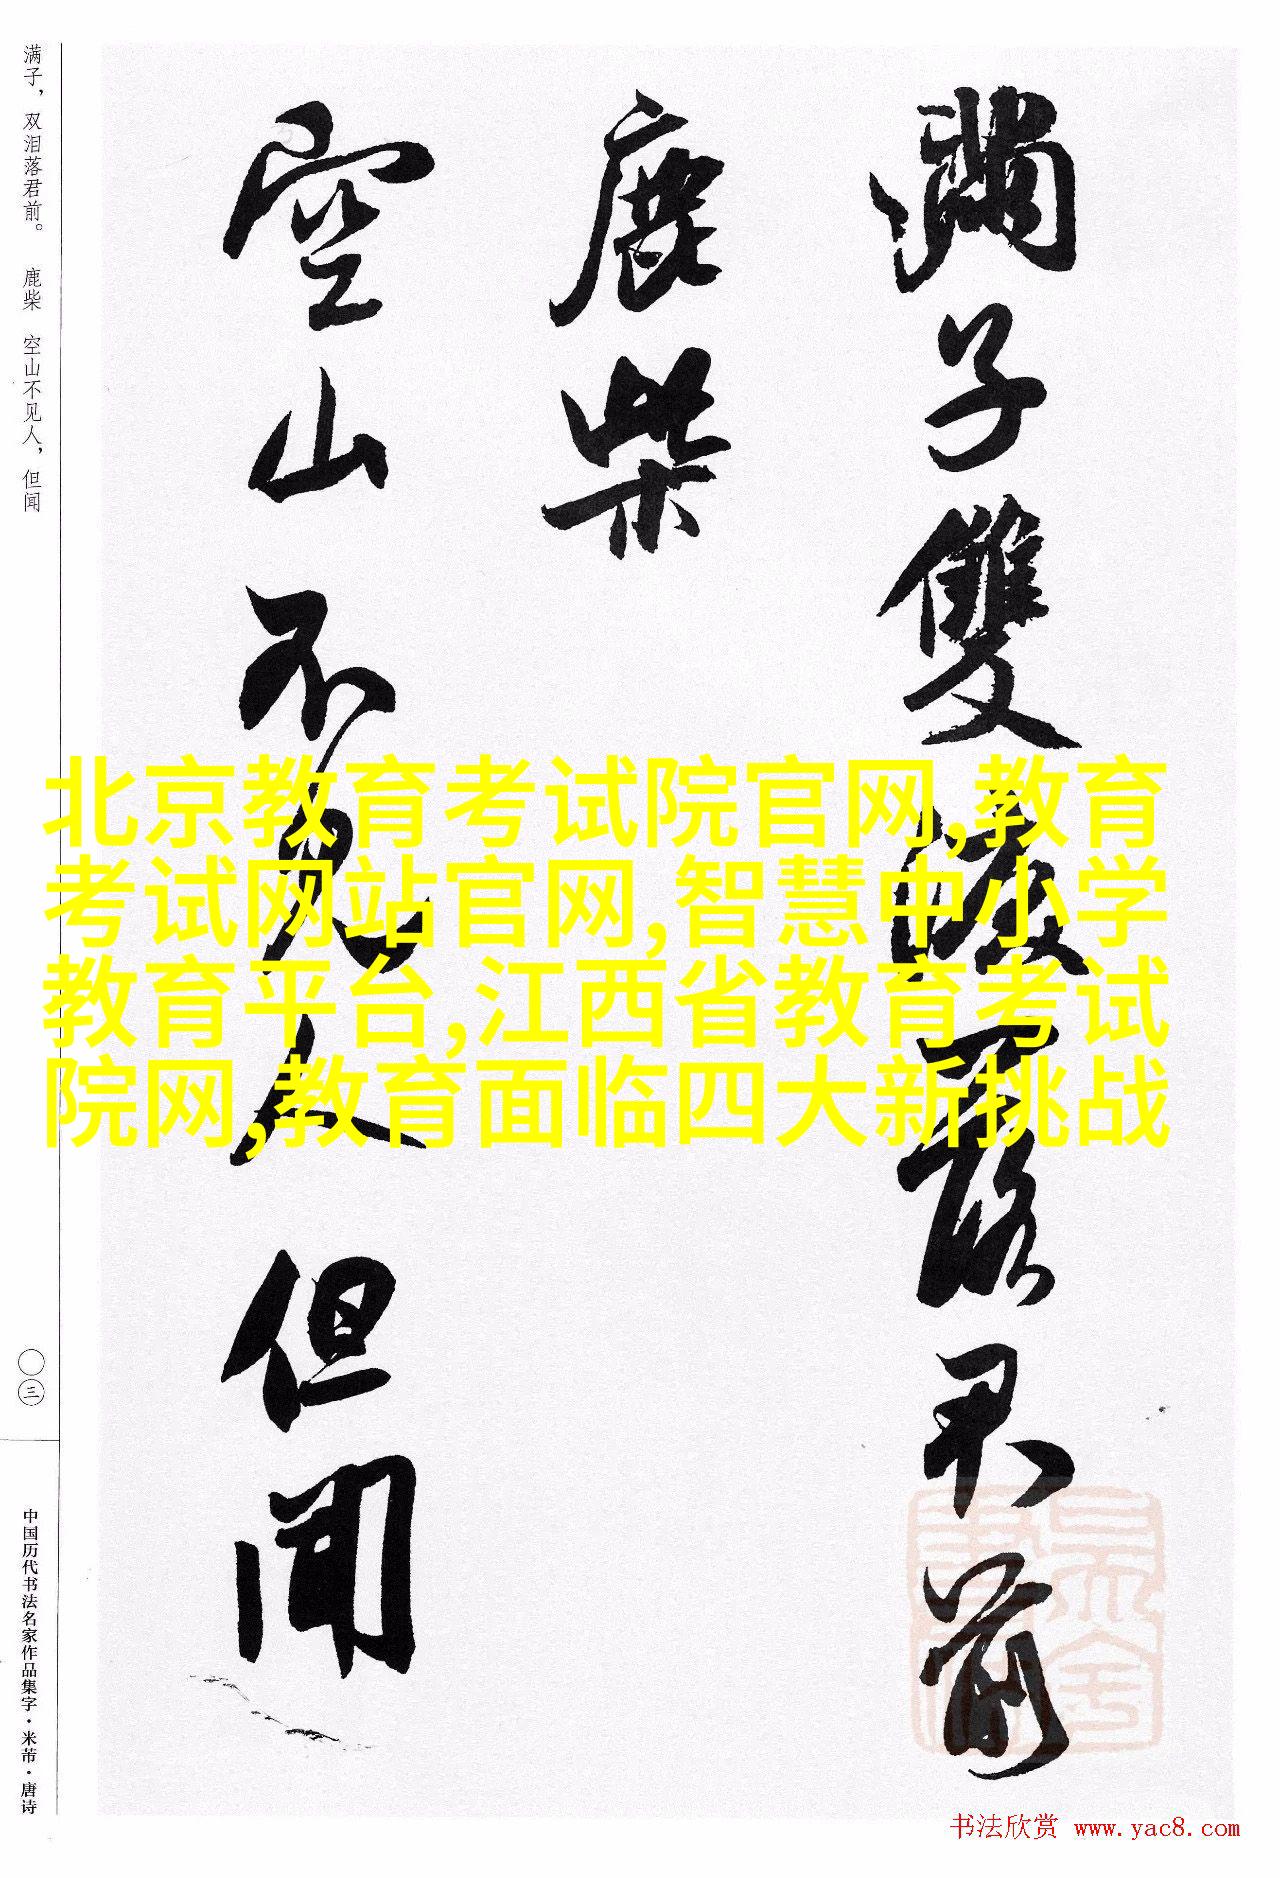 滿子雙淚落君前
鹿柴
空山不見人但聞
满子，双泪落君前。 鹿柴 空山不见人，但闻
〇三
中国历代书法名家作品集字·米芾·唐诗
北京教育考试院官网,教育
考试网站官网,智慧中小学
教育平台,江西省教育考试
院网,教育面临四大新挑战
书法欣赏 www.yac8.com